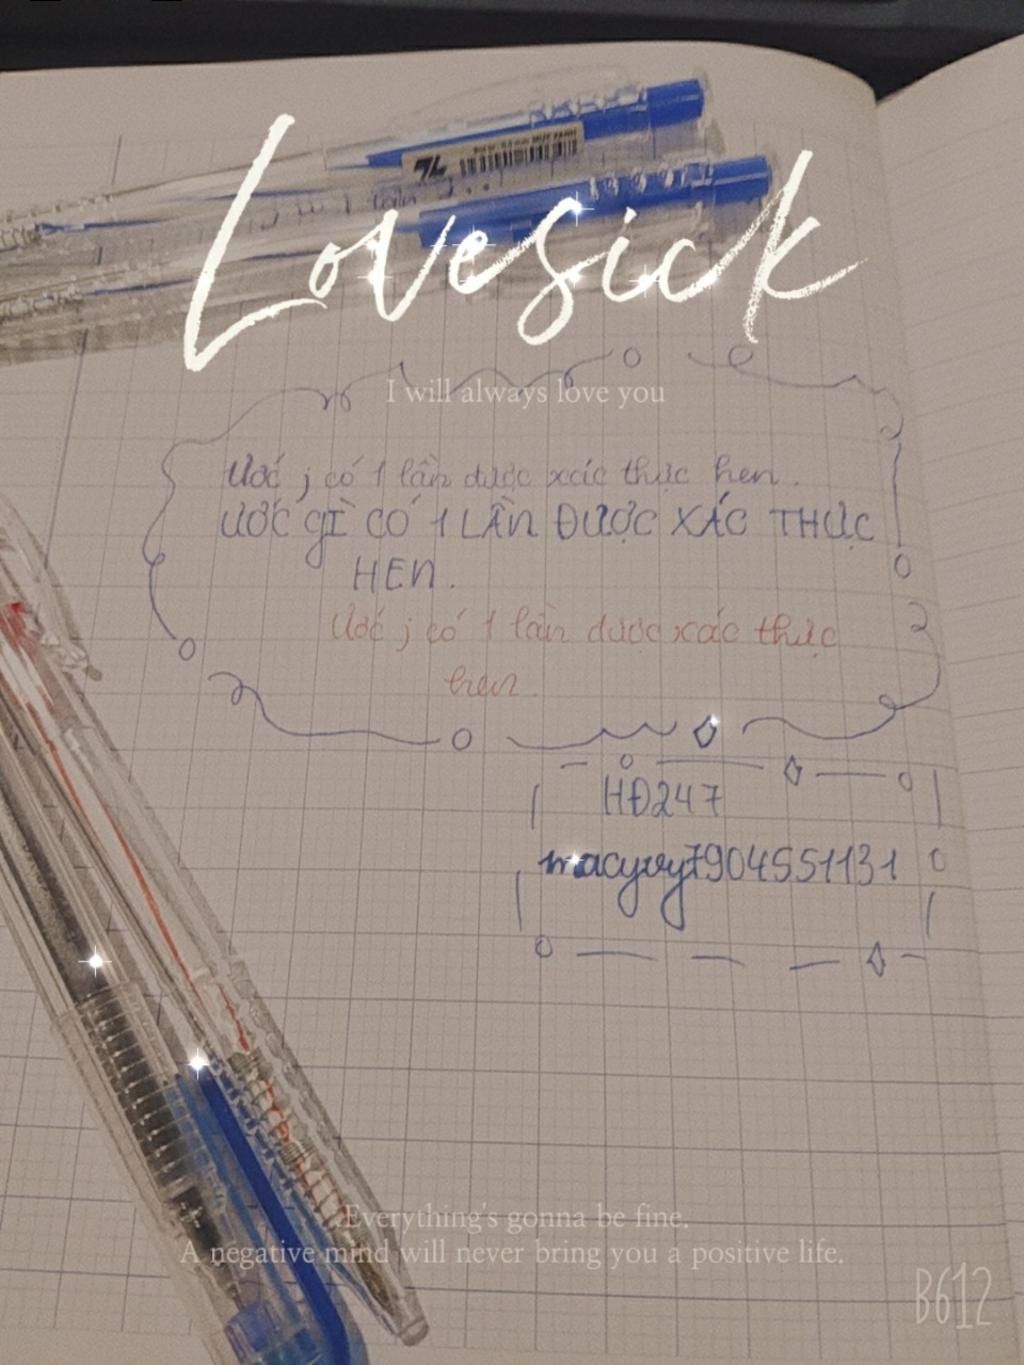 Lovesick
I will always love you
Ước j có 1 lần được xác thực hen.
ƯỚC GÌ CÓ 1 LẦN ĐƯỢC XÁC THỰC
HEN.
Ước j có 1 lần được xác thực
hen.
HĐ247
macyvy7904551131
Everything's gonna be fine.
A negative mind will never bring you a positive life.
B612